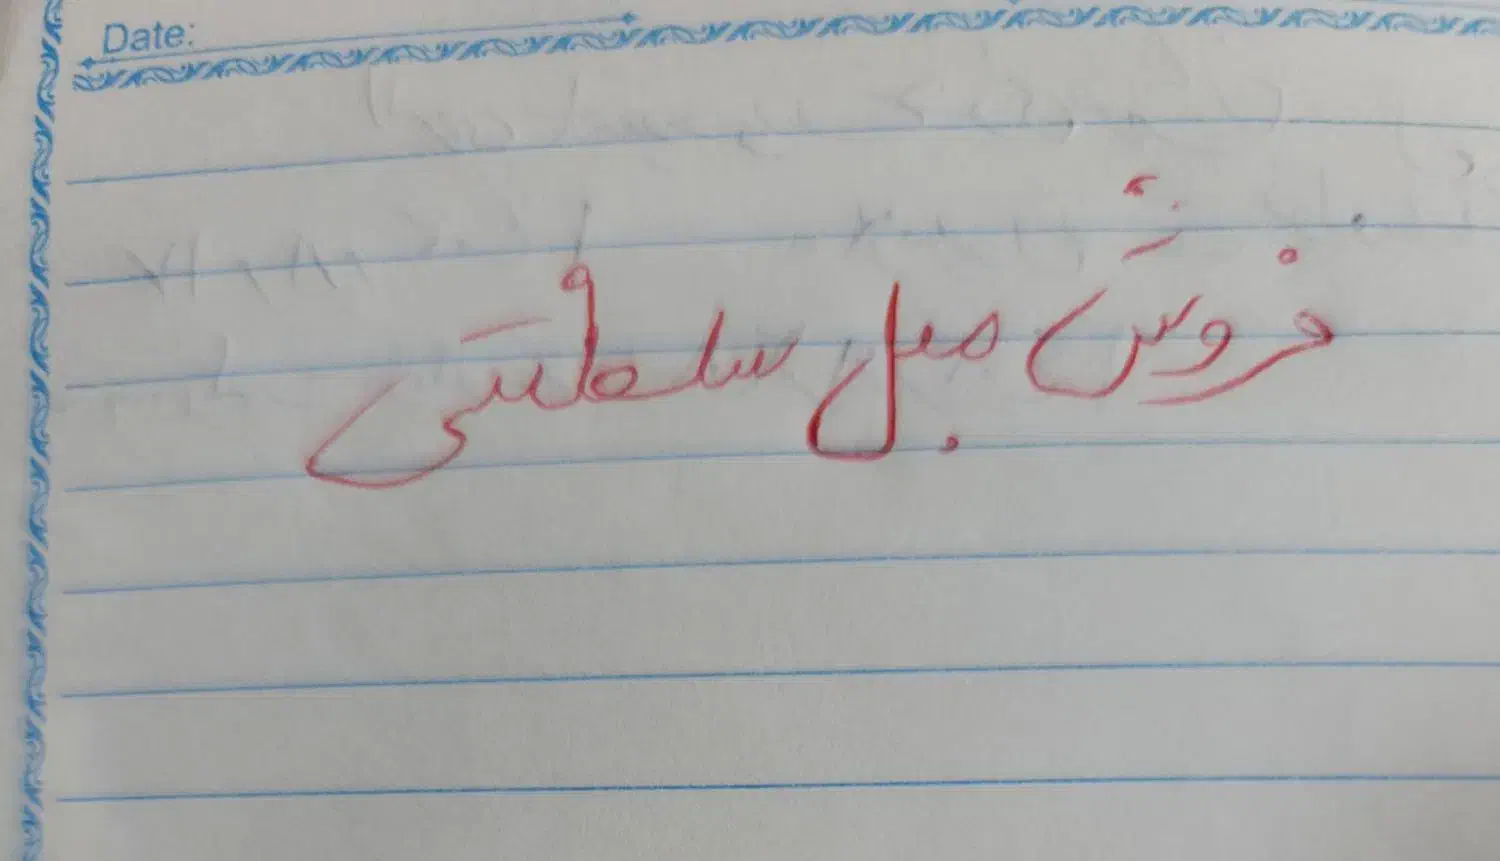 Date:
فروش مبل سلطنتی